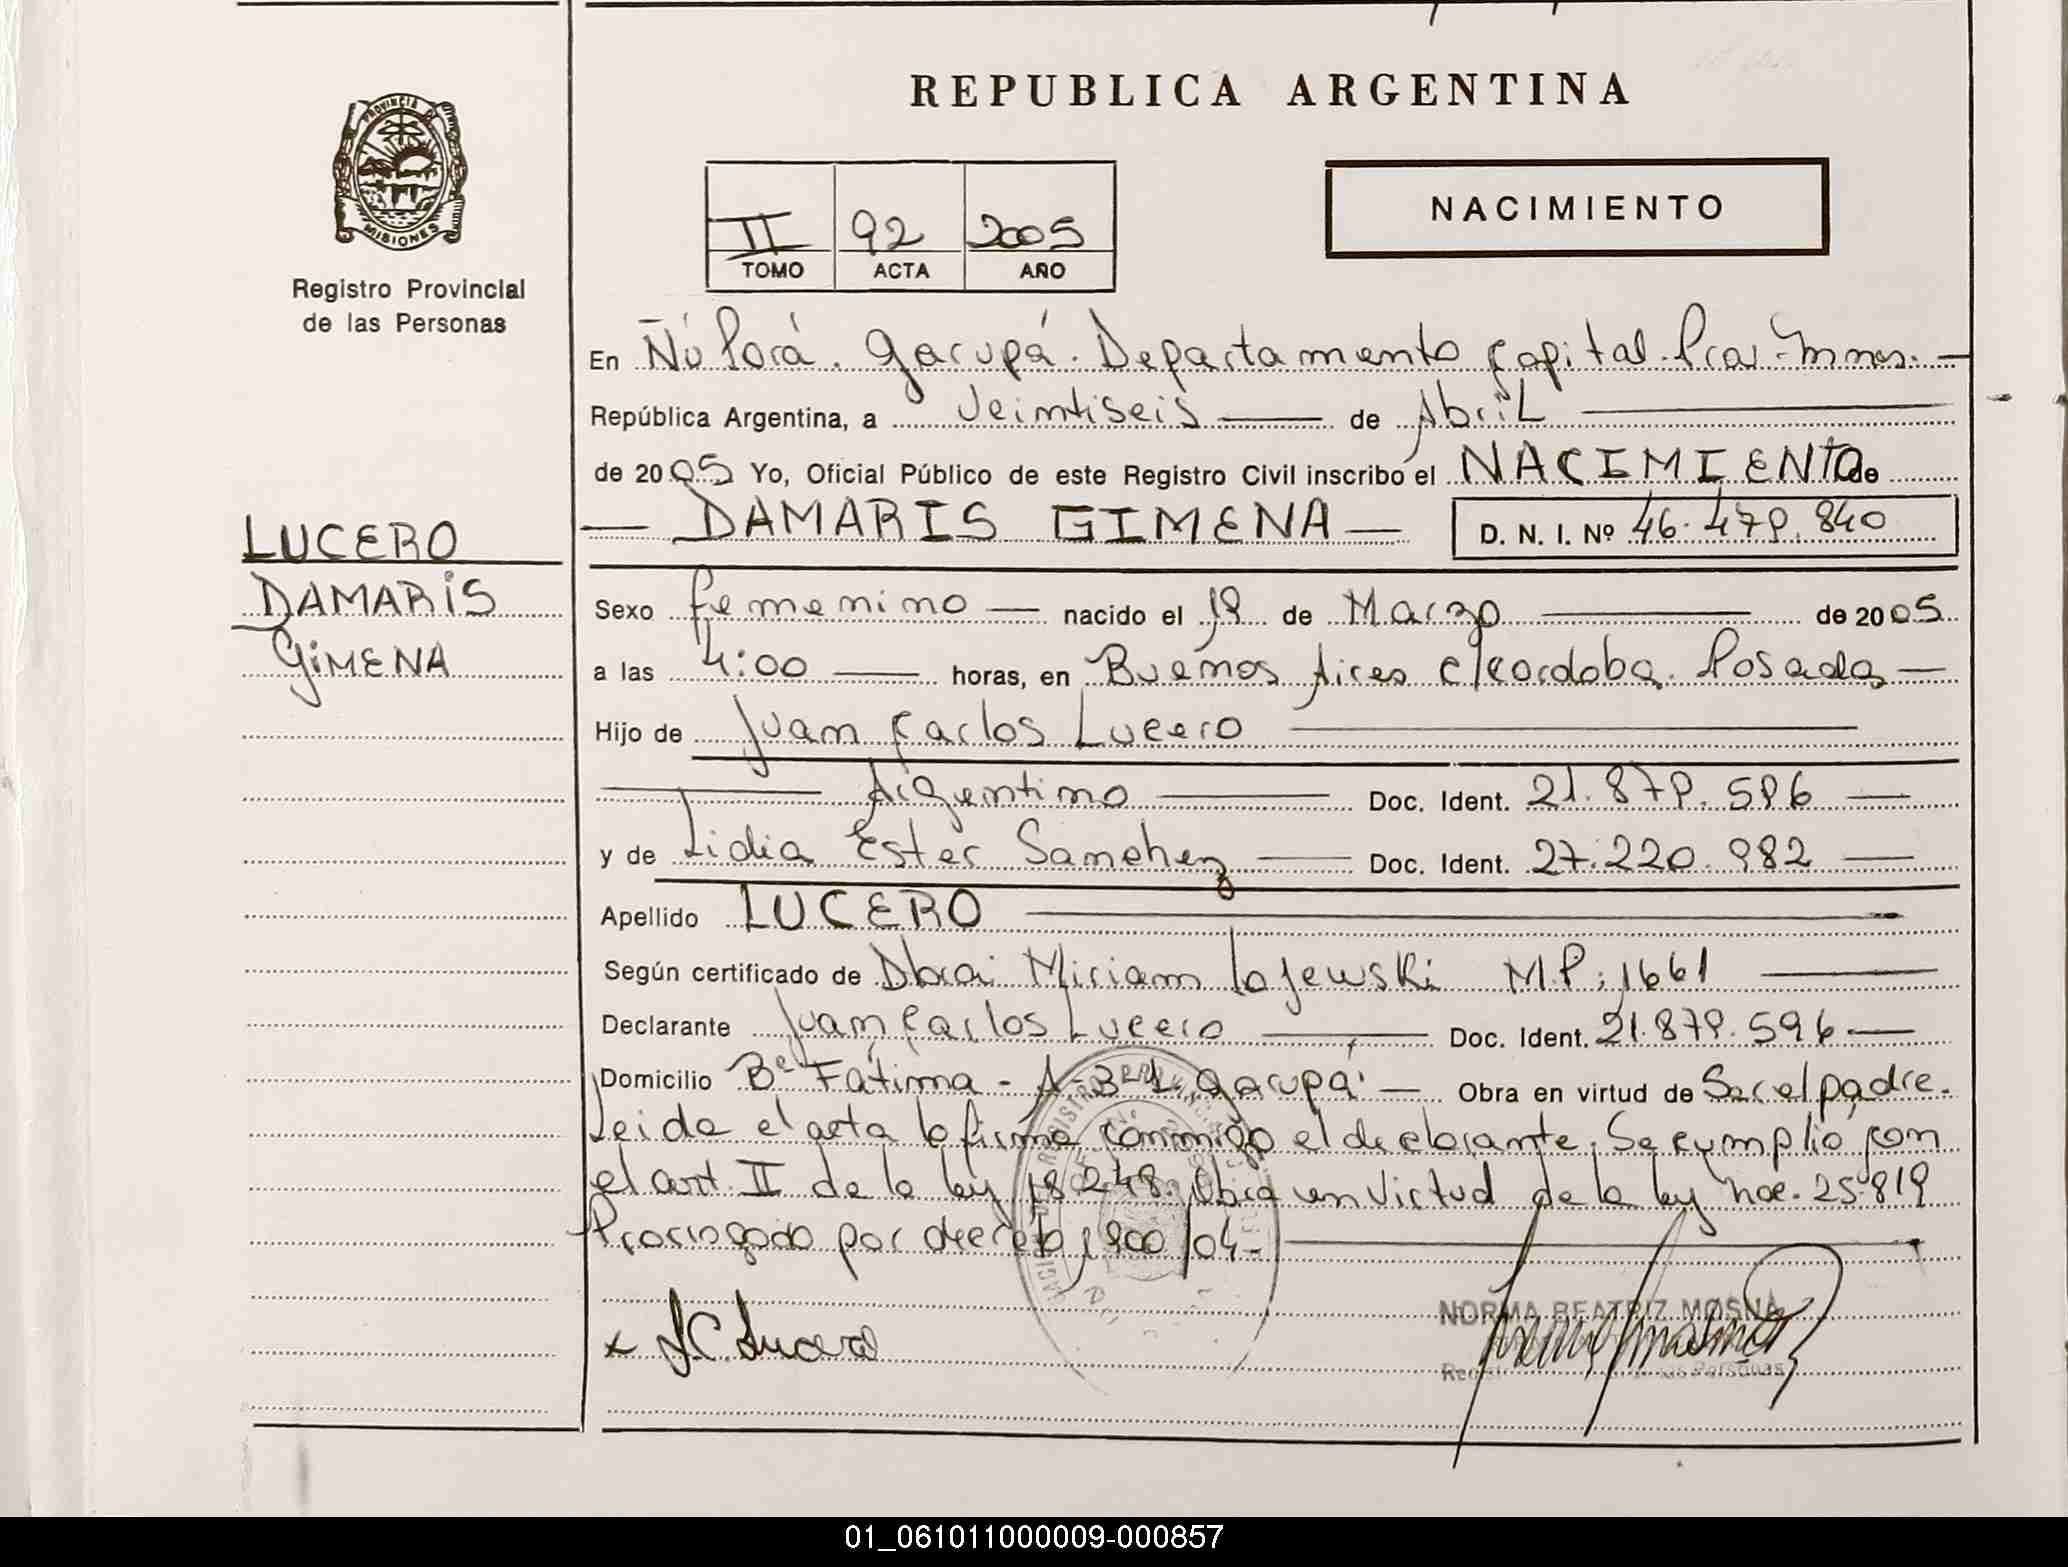 REPUBLICA ARGENTINA
PROVINCIA DE
MISIONES
Registro Provincial
de las Personas
II 92 2005
TOMO ACTA AÑO
NACIMIENTO
En Ñú Porá. Garupá. Departamento Capital. Pcia. Mnes.
República Argentina, a Veintiseis de Abril
de 2005 Yo, Oficial Público de este Registro Civil inscribo el NACIMIENTO de
DAMARIS GIMENA D. N. I. Nº 46.479.840
LUCERO
DAMARIS
GIMENA
Sexo femenino nacido el 19 de Marzo de 2005
a las 4:00 horas, en Buenos Aires c/cordoba. Posadas
Hijo de Juan Carlos Lucero
Argentino Doc. Ident. 21.879.596
y de Lidia Ester Sanchez Doc. Ident. 27.220.982
Apellido LUCERO
Según certificado de Dora Miriam Lajewski M.P: 1661
Declarante Juan Carlos Lucero Doc. Ident. 21.879.596
Domicilio Bº Fátima - Garupá Obra en virtud de Ser el padre.
Leida el acta la firma conmigo el declarante. Se cumplió con
el art. II de la ley 18248. Obra en virtud de la ley nac. 25819
Prorrogado por decreto 1900/04-
x J.C. Lucero
NORMA BEATRIZ MOSNA
las Personas
01_061011000009-000857